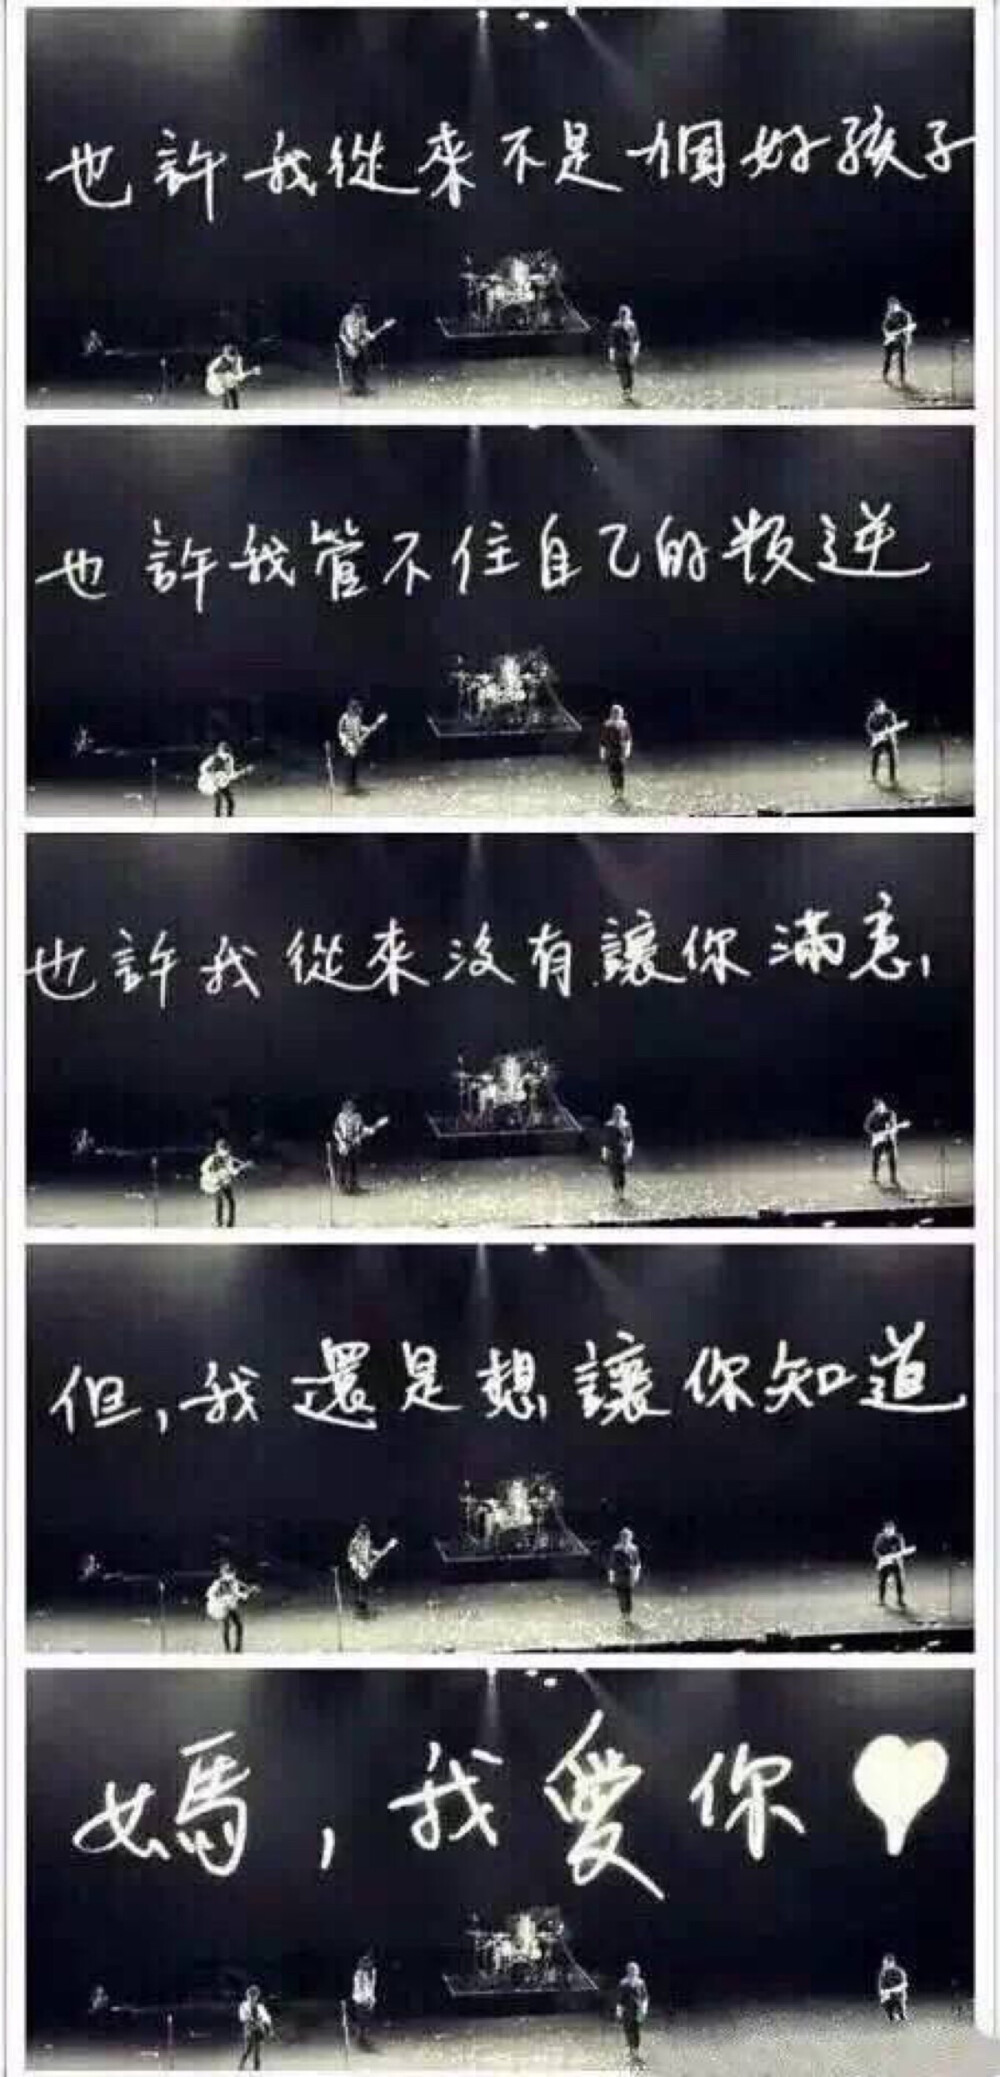 也許我從來不是個好孩子
也許我管不住自己的叛逆
也許我從來沒有讓你滿意,
但,我還是想讓你知道,
媽,我愛你♥